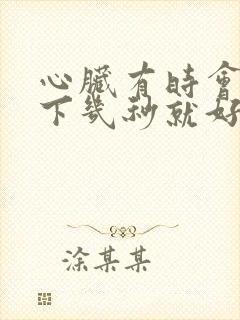 心臟有時會
下幾秒就好
涂某某